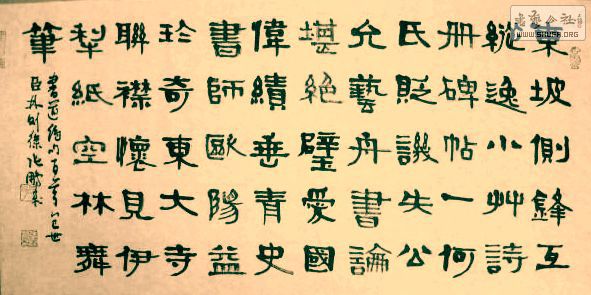 東坡側鋒互
縱逸小艸詩
冊碑帖一何
氏貶譏失公
允藝舟書論
堪絕璧愛國
偉績垂青史
書師歐陽益
珍奇東大寺
聯襟懷見伊
犁紙空林舞
筆
書道